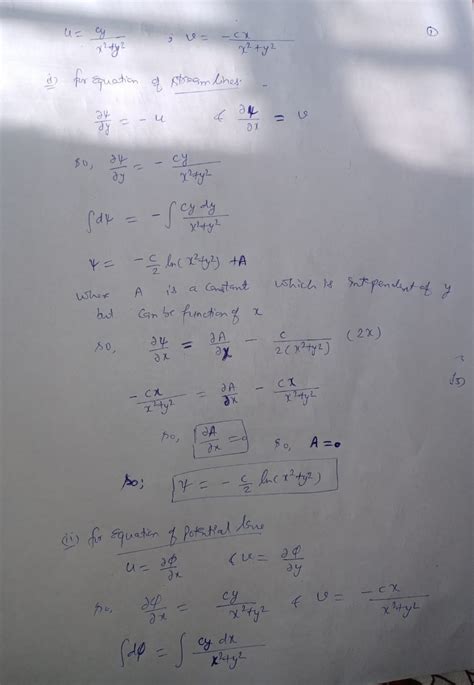 u = cy/(x²+y²) ; v = -cx/(x²+y²) ①
(i) for equation of stream lines -
∂ψ/∂y = -u & ∂ψ/∂x = v
so, ∂ψ/∂y = - cy/(x²+y²)
∫dψ = -∫ cy dy/(x²+y²)
ψ = - c/2 ln(x²+y²) + A
where A is a constant which is independent of y
but can be function of x
so, ∂ψ/∂x = ∂A/∂x - c/(2(x²+y²)) (2x)
-cx/(x²+y²) = ∂A/∂x - cx/(x²+y²)
so, ∂A/∂x = 0 so, A = 0
so; ψ = - c/2 ln(x²+y²)
(ii) for equation of potential line
u = ∂φ/∂x & v = ∂φ/∂y
so, ∂φ/∂x = cy/(x²+y²) & v = -cx/(x²+y²)
∫dφ = ∫ cy dx/(x²+y²)